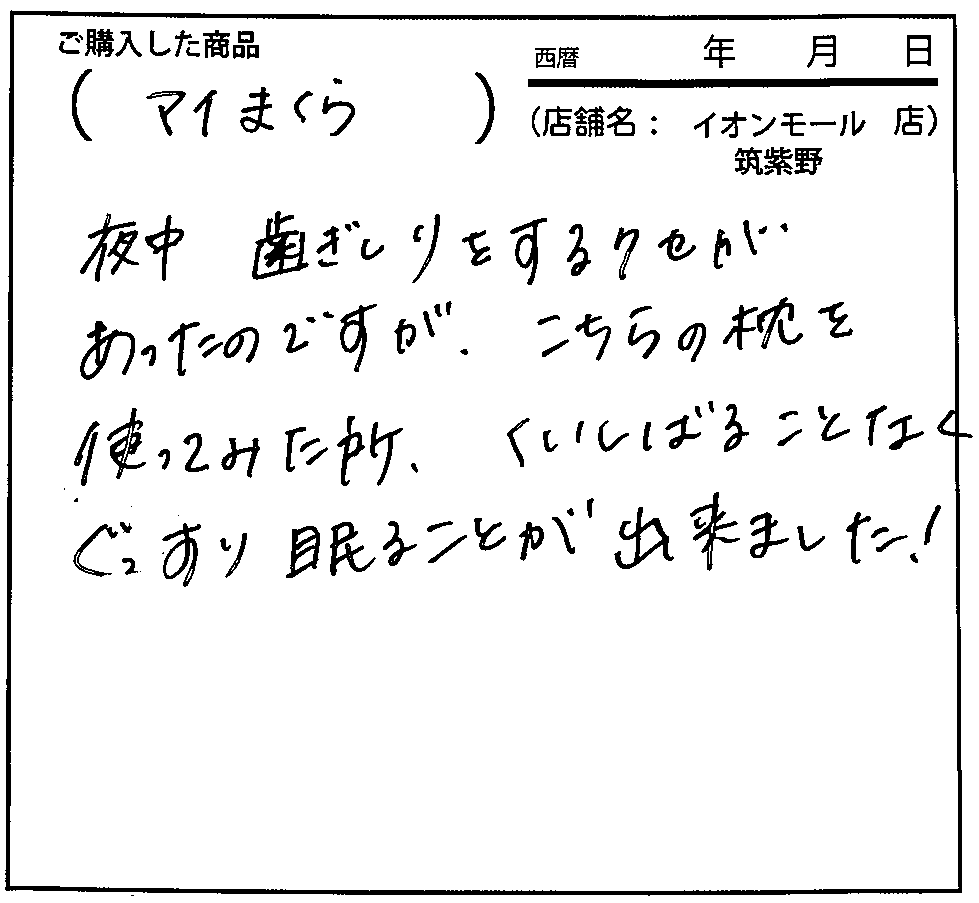 ご購入した商品
（ マイまくら ）
西暦　　年　　月　　日
（店舗名： イオンモール 店）
筑紫野
夜中 歯ぎしりをするクセが
あったのですが、こちらの枕を
使ってみた所、くいしばることなく
ぐっすり眠ることが出来ました！